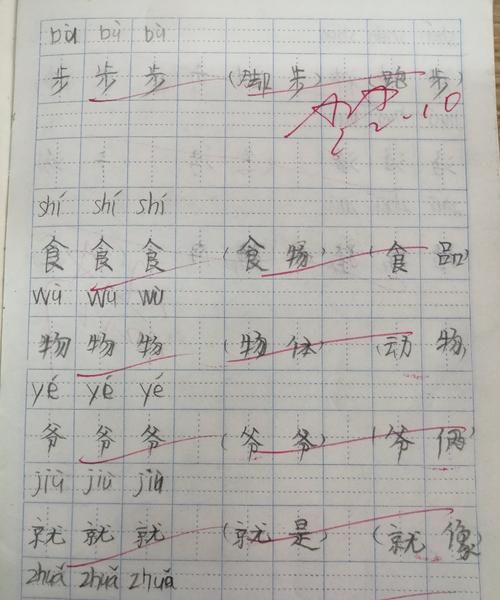 bù bù bù
步 步 步 (脚 步) (跑 步)
12.10
shí shí shí
食 食 食 (食 物) (食 品)
wù wù wù
物 物 物 (物 体) (动 物)
yé yé yé
爷 爷 爷 (爷 爷) (爷 俩)
jiù jiù jiù
就 就 就 (就 是) (就 像)
zhuǎ zhuǎ zhuǎ